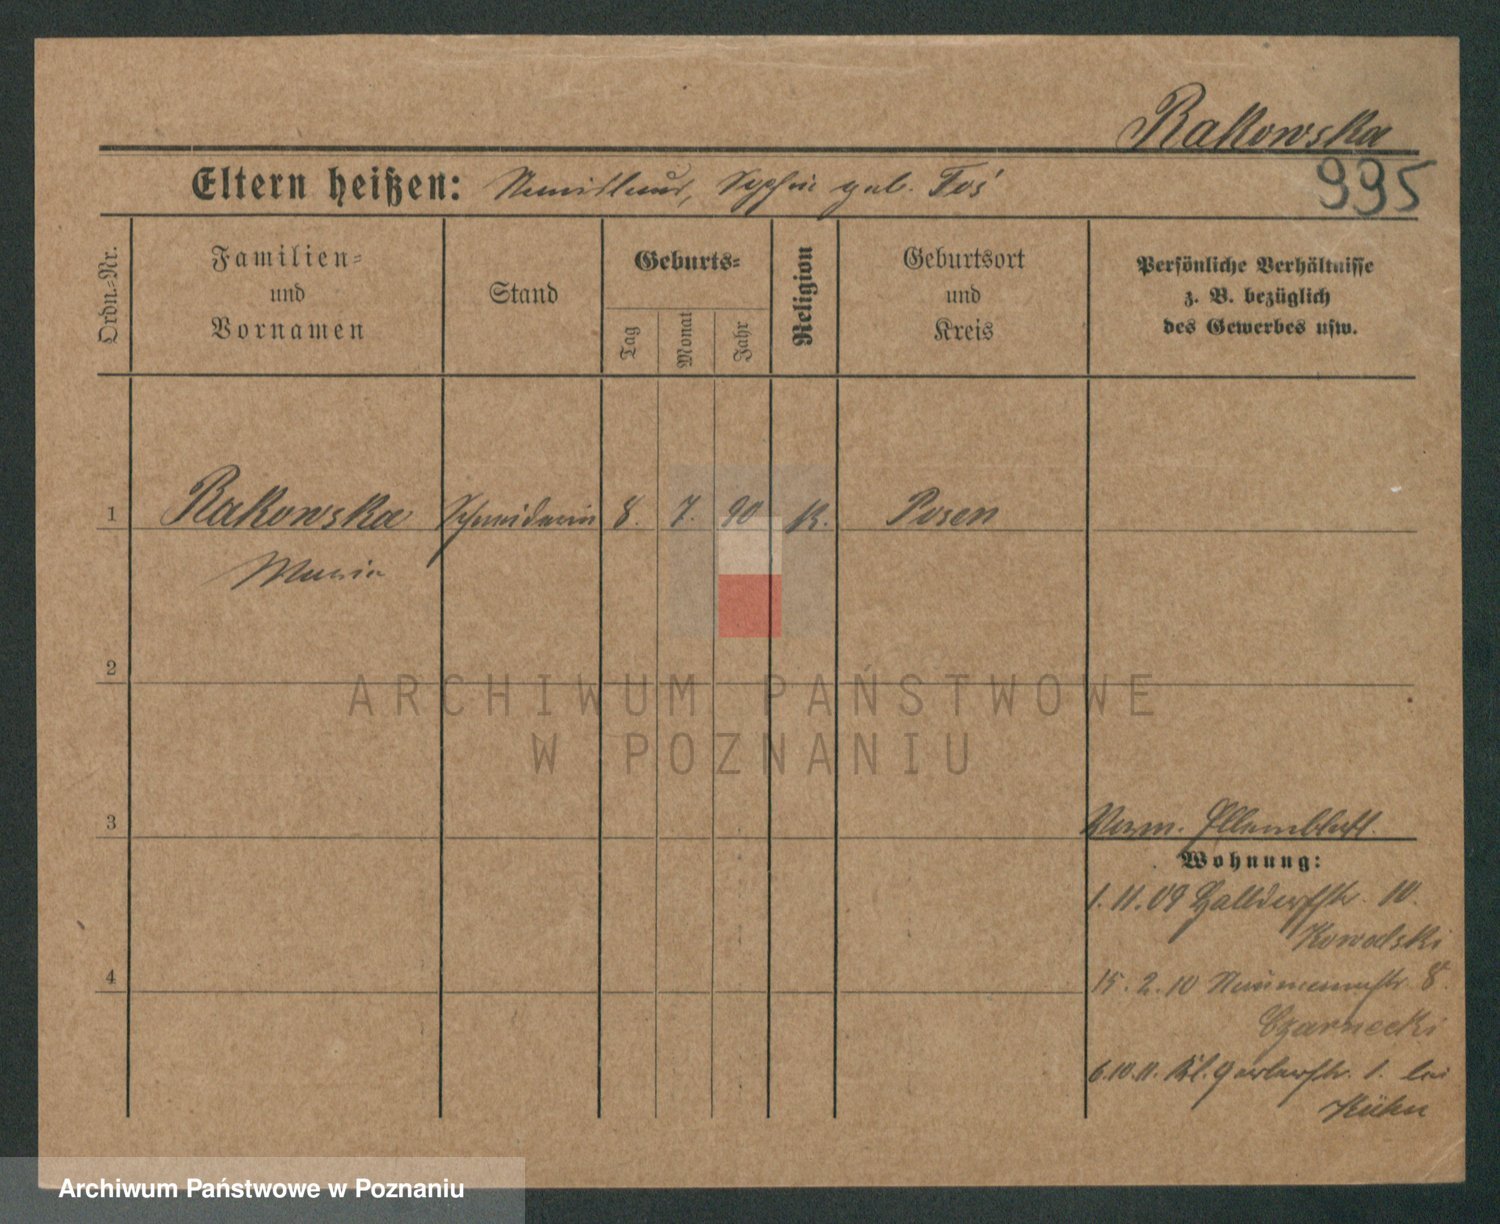 Rakowska
995
Eltern heißen: geb. Foś
Ordn.-Nr.
Familien-
und
Vornamen
Stand
Geburts-
Tag
Monat
Jahr
Religion
Geburtsort
und
Kreis
Persönliche Verhältnisse
z. B. bezüglich
des Gewerbes usw.
1 Rakowska Schneiderin 8. 7. 90 K. Posen
Maria
2
ARCHIWUM PAŃSTWOWE
W POZNANIU
3
Wohnung:
1. 11. 09 10.
4
15. 2. 10 8.
Czarnecki
6.10.11. Kl. Gerberstr. 1. bei
Kühn
Archiwum Państwowe w Poznaniu